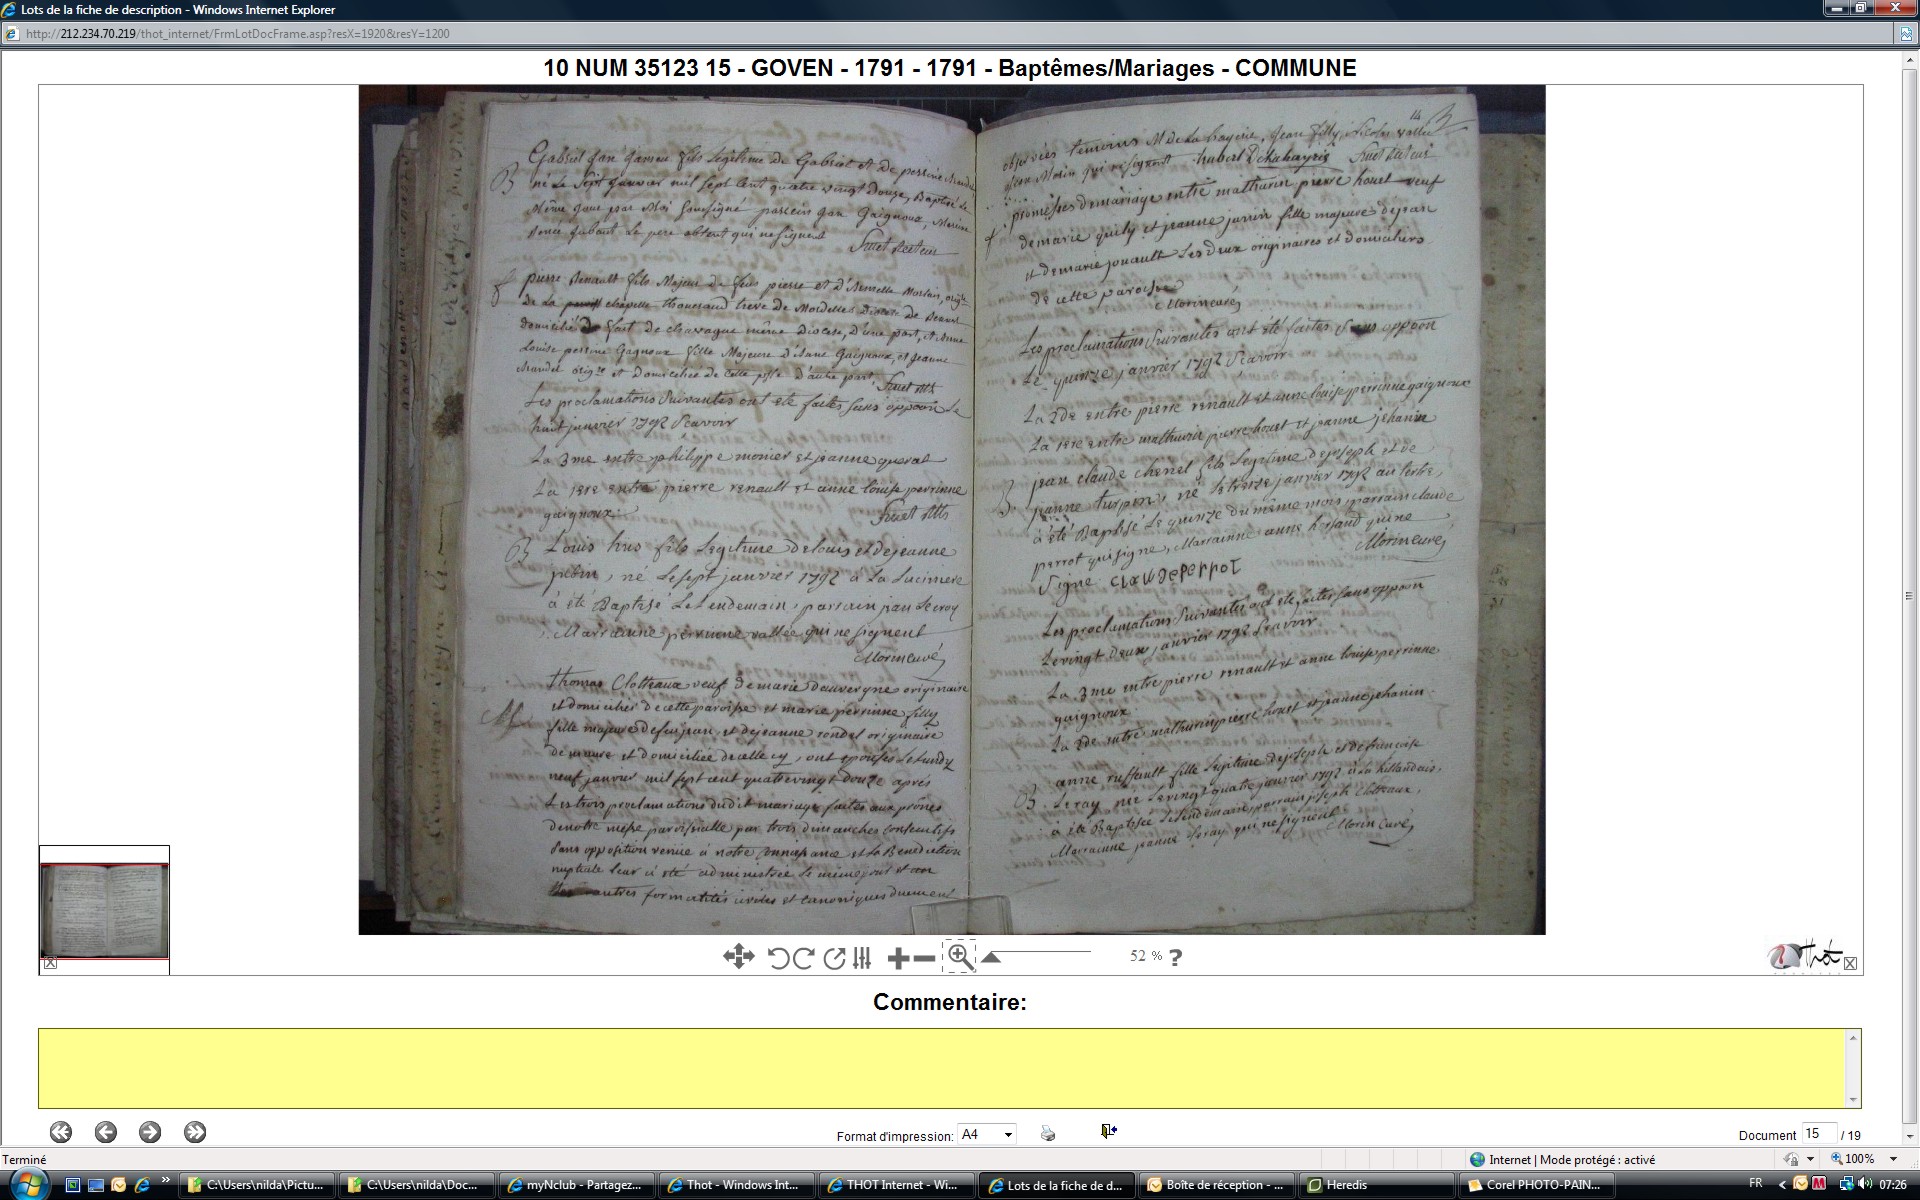 Lots de la fiche de description - Windows Internet Explorer
http://212.234.70.219/thot_internet/FrmLotDocFrame.asp?resX=1920&resY=1200
10 NUM 35123 15 - GOVEN - 1791 - 1791 - Baptêmes/Mariages - COMMUNE
Gabriel fils légitime de Gabriel et de perrine
né le sept janvier mil sept cent quatre vingt douze, Baptisé le
même jour par Moi Soussigné parrein jan Gaignoux,
le pere absent qui ne signent
recteur
B
pierre Renault fils Majeur de feus pierre et d'
de la chapelle thoueraud treve de
domicilié de fait de chavagne même Diocese, d'une part, et Anne
Louise perrine Gagnoux fille Majeure d' Gaignoux, et jeanne
et domiciliée de cette d'autre part
Les proclamations suivantes ont été faites sans oppoon le
huit janvier 1792 Scavoir
La 3me entre philippe monier et jeanne
La 1ere entre pierre renault et anne louise perrinne
gaignoux
B
Louis hus fils Legitime de louis et de jeanne
né le sept janvier 1792 à La
à été Baptisé Le Lendemain, parrain jean
Marrainne perrinne vallée qui ne signent
Morin curé
M
thomas Clotteaux veuf de marie dauvergne originaire
et domicilié de cette paroisse et marie perrinne filly
fille majeure de feu jean et de jeanne rondel originaire
de maure et domiciliée de celle cy, ont épousés Le Lundy
neuf janvier mil sept cent quatre vingt douze après
Les trois proclamations dudit mariage faites aux prônes
de notre messe paroissialle par trois dimanches consecutifs
sans opposition venüe à notre connoissance et la Benediction
nuptiale leur à été administrée le même jour et an
autres formalités civiles et canoniques dument
14
observées temoins M De la hayrie, Jean filly, Nicolas vallée
Morin qui ne signent hubert Delahayrie
promesses de mariage entre mathurin pierre houet veuf
de marie et jeanne janvin fille majeure de jean
et de marie jouault Les deux originaires et domiciliers
de cette paroisse
Morin curé
Les proclamations Suivantes ont été faites Sans oppoon
Le quinze janvier 1792 Scavoir
La 2de entre pierre renault et anne louise perrinne gaignoux
La 1ere entre mathurin pierre houet et jeanne jehanin
B
jean claude chenel fils Legitime de joseph et de
jeanne turpin, né le treize janvier 1792 au
à été Baptisé Le quinze du même mois, parrain claude
perrot qui signe, Marrainne anne qui ne
Signe claudeperrot
Morin curé
Les proclamations Suivantes ont été faites sans oppoon
Le vingt Deux janvier 1792 Scavoir
La 3me entre pierre renault et anne louise perrinne
gaignoux
La 2de entre mathurin pierre houet et jeanne jehanin
B
anne ruffault fille Legitime de joseph et de francoise
Leray née Le vingt quatre janvier 1792 à la
à été Baptisée Le Lendemain, parrain joseph Clotteaux,
Marrainne jeanne Leray qui ne signent Morin curé
52 % ?
Thot
Commentaire:
Format d'impression: A4
Document 15 / 19
Terminé
Internet | Mode protégé : activé
100%
C:\Users\nilda\Pictu...
C:\Users\nilda\Doc...
myNclub - Partagez...
Thot - Windows Int...
THOT Internet - Wi...
Lots de la fiche de d...
Boîte de réception - ...
Heredis
Corel PHOTO-PAIN...
FR
07:26